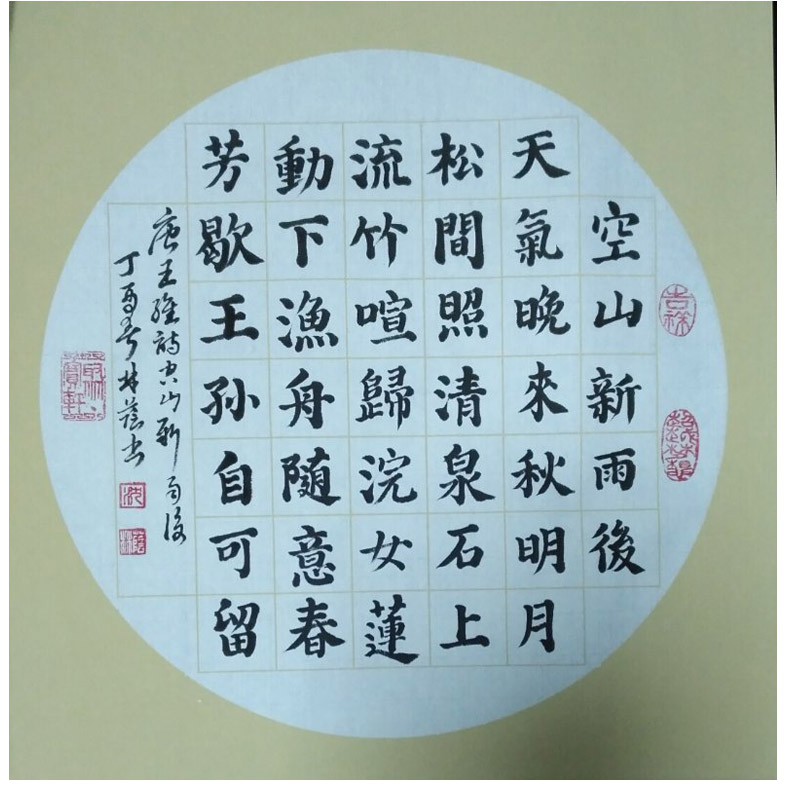 吉祥
空山新雨後
天氣晚來秋明月
松間照清泉石上
流竹喧歸浣女蓮
動下漁舟隨意春
芳歇王孙自可留
唐王維詩空山新雨後
丁酉林蔭书